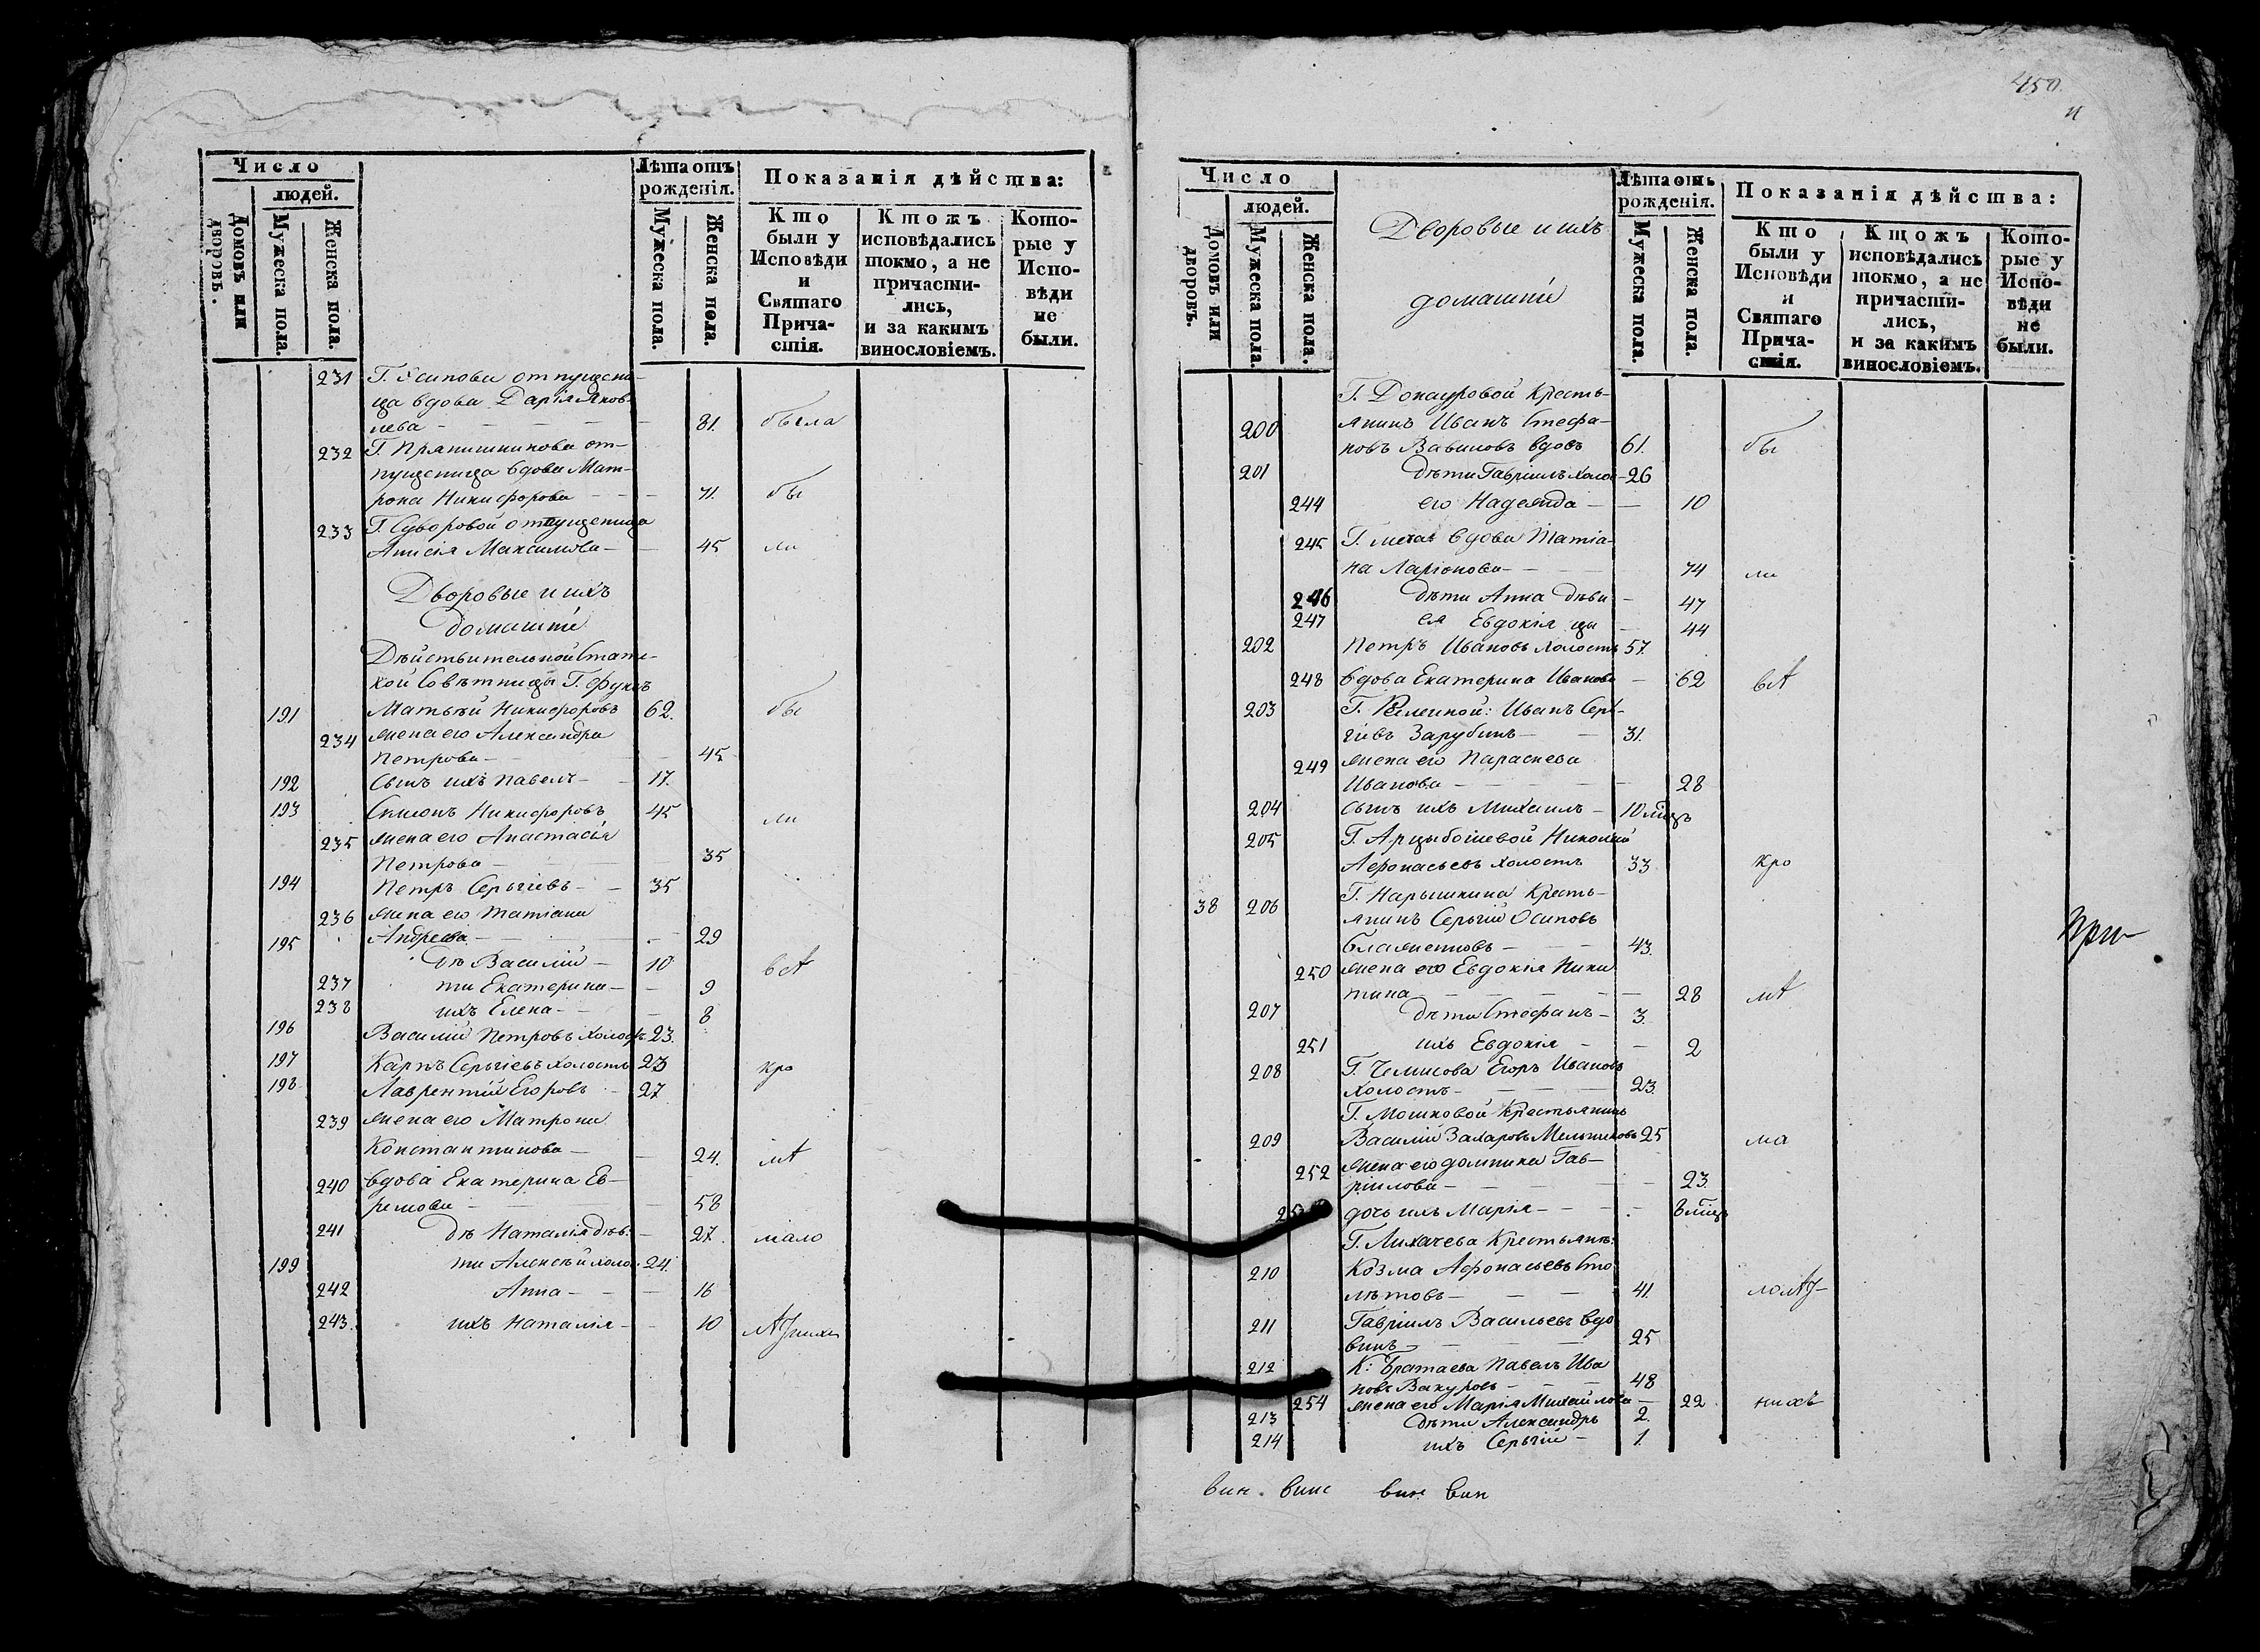 Число
людей.
Домовъ или дворовъ.
Мужеска пола.
Женска пола.
Лѣта отъ рожденія.
Мужеска пола.
Женска пола.
Показанія дѣйства:
Кто были у Исповѣди и Святаго Прича-стія.
Ктожъ исповѣдались токмо, а не причасти-лись, и за какимъ винословіемъ.
Кото-рые у Испо-вѣди не были.
231 Г. Осипова отпущени-
ца вдова Дарія Яков-
лева — 81. была
232 Г. Прянишникова от-
пущеница вдова Мат-
рона Никифорова — 71. бы
233 Г. Суворовой отпущеница
Анисія Максимова — 45 ли
Дворовые и ихъ
домашніе
Дѣйствительной Статс-
кой Совѣтницы Г. Фуксъ
191 Матвѣй Никифоровъ 62. бы
234 жена его Александра
Петрова — 45
192 Сынъ ихъ Павелъ — 17.
193 Симеонъ Никифоровъ 45 ли
235 жена его Анастасія
Петрова — 35
194 Петръ Сергіевъ — 35
236 жена его Татіана
Андреева — 29
195 дѣ Василій — 10 всѣ
237 ти Екатерина — 9
238 ихъ Елена — 8
196 Василій Петровъ холостъ 23.
197 Карпъ Сергіевъ холостъ 23 кро
198 Лаврентій Егоровъ — 27
239 жена его Матрона
Константинова — 24. мѣ
240 вдова Екатерина Ев-
ремова — 58
241 дѣ Наталія дѣв. — 27. мало
199 ти Алексѣй холо. 24.
242 Анна — 16
243. ихъ Наталія — 10
450.
Число
людей.
Домовъ или дворовъ.
Мужеска пола.
Женска пола.
Дворовые и ихъ
домашніе
Лѣта отъ рожденія.
Мужеска пола.
Женска пола.
Показанія дѣйства:
Кто были у Исповѣди и Святаго Прича-стія.
Ктожъ исповѣдались токмо, а не причасти-лись, и за какимъ винословіемъ.
Кото-рые у Испо-вѣди не были.
Г. Донауровой Кресть-
200 янинъ Иванъ Стефа-
новъ Вавиловъ вдовъ 61. бы
201 дѣти Гавріилъ холос — 26
244 его Надежда — 10
245 вдова Татіа-
на Ларіонова — 74 ли
246 дѣти Анна дѣви — 47
247 ея Евдокія цы — 44
202 Петръ Ивановъ холостъ 57.
248 вдова Екатерина Иванова — 62 всѣ
203 Иванъ Сер-
гіевъ Зарубинъ — 31.
249 жена его Параскева
Иванова — 28
204 сынъ ихъ Михаилъ — 10 мцъ
205 Г. Арцыбошевой Николай
Афонасьевъ холостъ 33 кро
38 206 Г. Нарышкина Кресть-
янинъ Сергій Осиповъ
Блаженновъ — 43.
250 жена его Евдокія Ники
тина — 28 мѣ
207 дѣти Стефанъ — 3.
251 ихъ Евдокія — 2
208 Г. Чемисова Егоръ Ивановъ
холостъ — 23.
Г. Мошковой Крестьянинъ
209 Василій Захаровъ Мельниковъ 25 ма
252 жена его Домника Гав-
ріилова — 23.
дочь ихъ Марія — 8 мцъ
Г. Лихачева Крестьянъ:
210 Козма Афонасьевъ Сто
лѣтовъ — 41.
211 Гавріилъ Васильевъ вдо
вецъ — 25
212 К: Братаева Павелъ Ива
новъ Вакуровъ — 48
254 жена его Марія Михайлова — 22 нихъ
213 дѣти Александръ 2.
214 ихъ Сергій — 1.
При-
вин. вине вине вин